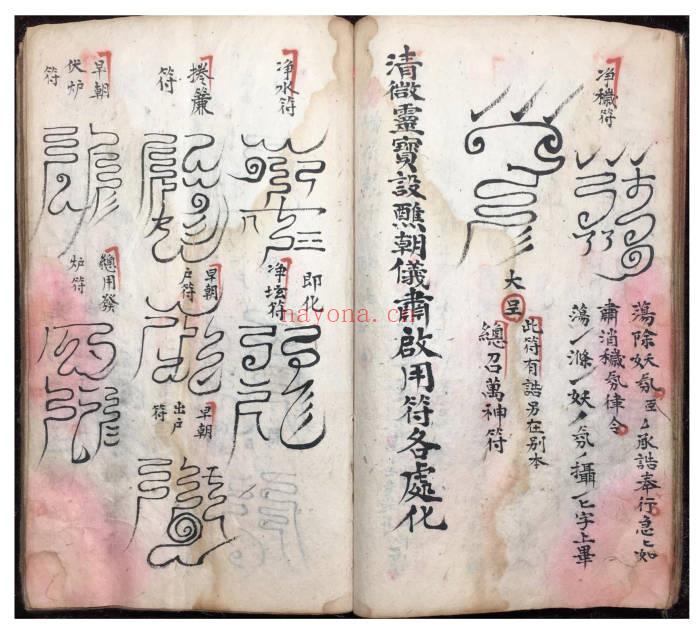 净穢符
蕩除妖氛亟
承誥奉行急
如
肅消穢氛律令
蕩滌妖氛攝
字上畢
大
此符有誥另在別本
總召萬神符
清微靈寶設醮朝儀肅啟用符各處化
净水符
即化
净坛符
捲簾
符
早朝
户符
早朝
出户
符
早朝
伏炉
符
總用發
炉符
nayona.cn